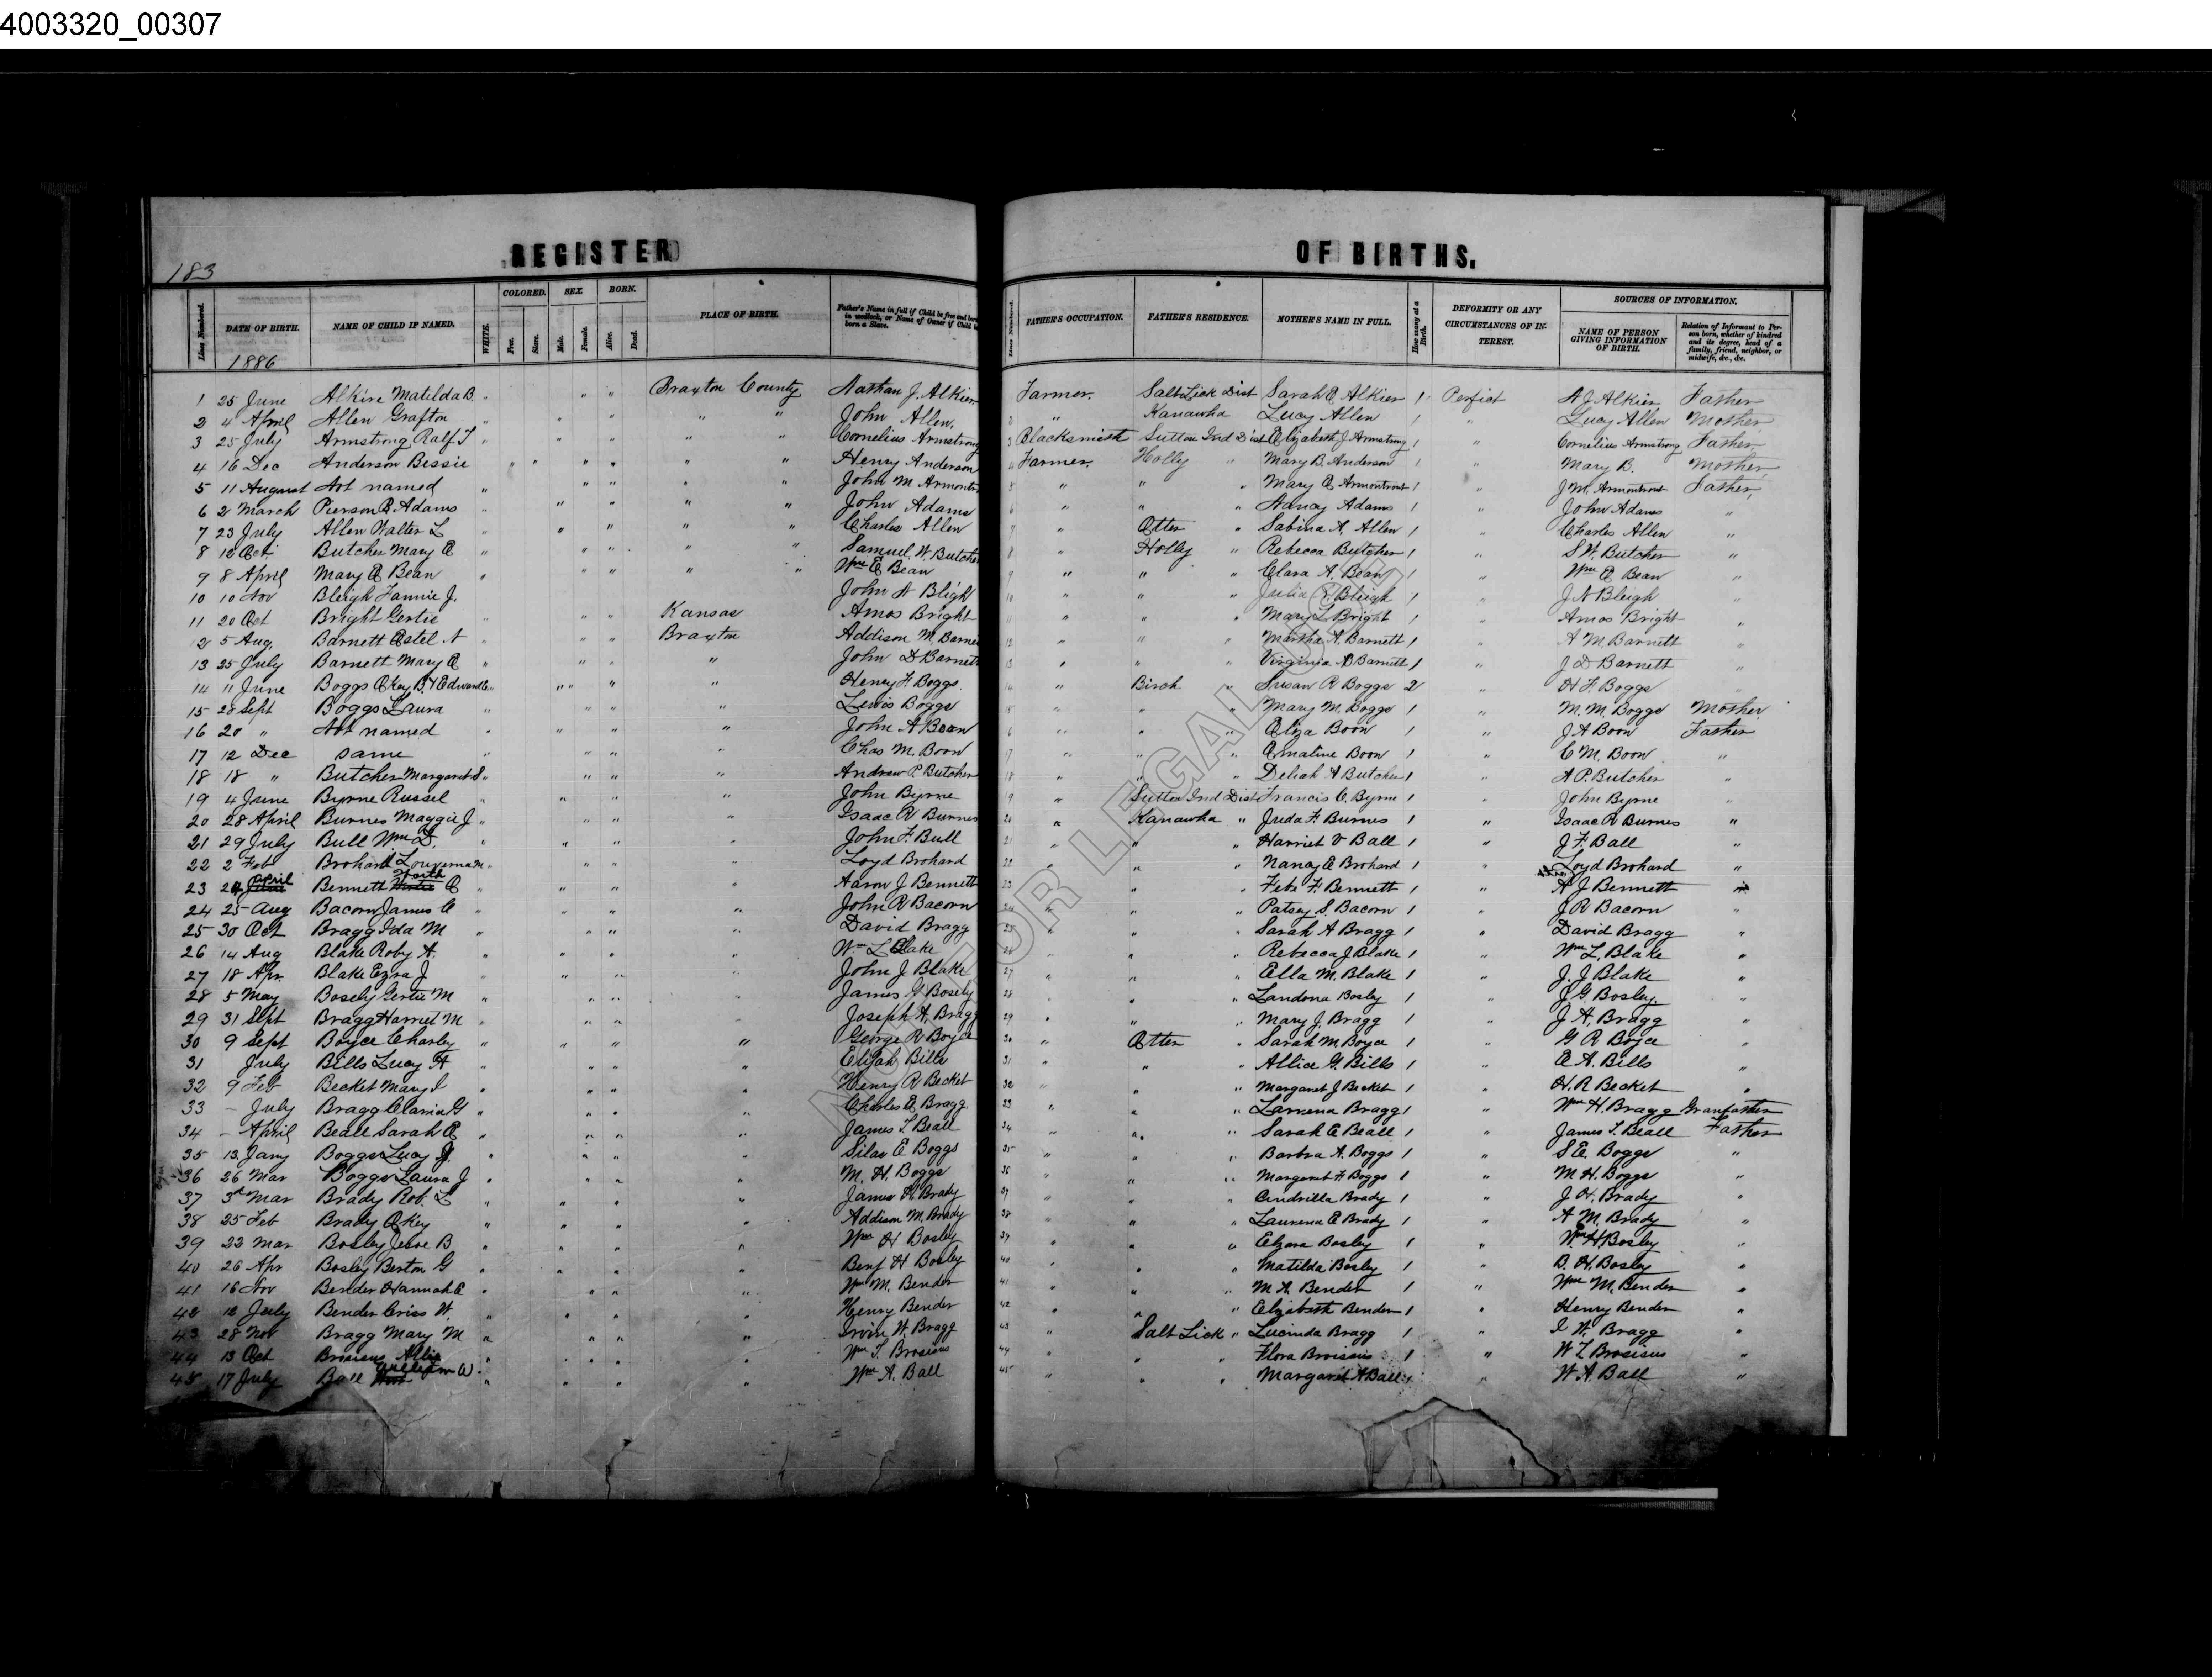 4003320_00307
183
REGISTER OF BIRTHS.
Lines Numbered. DATE OF BIRTH. NAME OF CHILD IF NAMED. WHITE. COLORED. Free. Slave. SEX. Male. Female. BORN. Alive. Dead. PLACE OF BIRTH. Father's Name in full if Child be free and born in wedlock, or Name of Owner if Child be born a Slave.
Lines Numbered. FATHER'S OCCUPATION. FATHER'S RESIDENCE. MOTHER'S NAME IN FULL. How many at a Birth. DEFORMITY OR ANY CIRCUMSTANCES OF INTEREST. SOURCES OF INFORMATION. NAME OF PERSON GIVING INFORMATION OF BIRTH. Relation of Informant to Person born, whether of kindred and its degree, head of a family, friend, neighbor, or midwife, &c., &c.
1886
1 25 June Alkire Matilda B. " " " Braxton County Nathan J. Alkier Farmer. Salt Lick Dist Sarah E Alkier 1 Perfict N J Alkier Father
2 4 April Allen Grafton " " " " " John Allen. " Kanawha Lucy Allen 1 " Lucy Allen Mother
3 25 July Armstrong Ralf T " " " " " Cornelius Armstrong Blacksmith Sutton Ind Dist Elizabeth J Armstrong 1 " Cornelius Armstrong Father
4 16 Dec Anderson Bessie " " " " " " Henry Anderson Farmer. Holly " Mary B. Anderson 1 " Mary B. Mother
5 11 August Not named " " " " " John M Armontr " " " Mary E Armontrout 1 " J M. Armontrout Father
6 2 March Pierson B Adams " " " " " John Adams " " " Nancy Adams 1 " John Adams "
7 23 July Allen Walter L " " " " " Charles Allen " Otter " Sabina A. Allen 1 " Charles Allen "
8 12 Oct Butcher Mary E " " " " " Samuel W. Butcher " Holly " Rebecca Butcher 1 " S W. Butcher "
9 8 April Mary E Bean " " " " " Wm E Bean " " " Clara A. Bean 1 " Wm E Bean "
10 10 Nov Bleigh Fannie J. John N Bligh " " " Julia E Bleigh 1 " J N Bleigh "
11 20 Oct Bright Gertie " " " Kansas Amos Bright " " " Mary L Bright 1 " Amos Bright "
12 5 Aug. Barnett Estel N " " " Braxton Addison M Barne " " " Martha A. Barnett 1 " A M Barnett "
13 25 July Barnett Mary E " " " " John D Barnett " " " Virginia Barnett 1 " J D Barnett "
14 11 June Boggs Okey B. & Edward " " " " " Henry F. Boggs. " Birch " Susan R Boggs 2 " H F. Boggs
15 28 Sept Boggs Laura " " " " Lewis Boggs " " " Mary M. Boggs 1 " M. M. Boggs Mother
16 20 " Not named " " " " John A Boon " " " Eliza Boon 1 " J A Boon Father
17 12 Dec same " " " Chas M. Boon " " " Ematine Boon 1 " C M. Boon "
18 18 " Butcher Margaret S " " " " Andrew P. Butcher " " " Deliah A Butcher 1 " A P. Butcher "
19 4 June Byrne Russel " " " " John Byrne " Sutton Ind Dist Francis C. Byrne 1 " John Byrne "
20 28 April Burnes Maggie J " " " " Isaac R Burnes " Kanawha " Juda F Burnes 1 " Isaac R Burnes "
21 29 July Bull Wm D. " " " " John F. Bull " " " Harriet V Ball 1 " J F. Ball "
22 2 Feb Brohard Louverna M " " " " Loyd Brohard " " " Nancy E Brohard 1 " Loyd Brohard "
23 24 April Bennett Worth E " " " " Aaron J Bennett " " " Febe F Bennett 1 " A J Bennett "
24 25 Aug Bacorn James C " " " " John R Bacorn " " " Patsey S. Bacorn 1 " J R Bacorn "
25 30 Oct Bragg Ida M " " " " David Bragg " " " Sarah A Bragg 1 " David Bragg "
26 14 Aug Blake Roby A. " " " " Wm L Blake " " " Rebecca J Blake 1 " Wm L. Blake "
27 18 Apr. Blake Ezra J " " " " John J Blake " " " Ella M. Blake 1 " J. J Blake "
28 5 May Bosely Gertie M " " " " James G Bosely " " " Landona Bosley 1 " J G. Bosley. "
29 31 Sept Bragg Harriet M " " " " Joseph A. Bragg " " " Mary J. Bragg 1 " J A. Bragg "
30 9 Sept Boyce Charley " " " " George R Boyce " Otter " Sarah M Boyce 1 " G R Boyce "
31 July Bills Lucy A " " " " Elijah Bills " " " Allice G. Bills 1 " E A. Bills "
32 9 Feb Becket Mary I " " " " Henry R Becket " " " Margaret J Becket 1 " H. R Becket "
33 - July Bragg Claria G " " " " Charles E Bragg " " " Larrena Bragg 1 " Wm H. Bragg Granfather
34 - April Beall Sarah E " " " " James T. Beall " " " Sarah E Beall 1 " James T. Beall Father
35 13 Jany Boggs Lucy J. " " " " Silas E Boggs " " " Barbra A. Boggs 1 " S E. Boggs "
36 26 Mar Boggs Laura J " " " " M. H. Boggs " " " Margaret F Boggs 1 " M H. Boggs "
37 3d Mar Brady Rob. L " " " " James H. Brady " " " Cindrilla Brady 1 " J H. Brady "
38 25 Feb Brady Okey " " " " Addison M. Brady " " " Laurena E Brady 1 " A M. Brady "
39 22 Mar Bosley Jesse B " " " " Wm H Bosley " " " Elzara Bosley 1 " Wm H Bosley "
40 26 Apr Bosley Berton G " " " " Benj H Bosley " " " Matilda Bosley 1 " B. H. Bosley "
41 16 Nov Bender Hannah E " " " " Wm M. Bender " " " M A. Bender 1 " Wm M. Bender "
42 12 July Bender Criss W. " " " " Henry Bender " " " Elizabeth Bender 1 " Henry Bender "
43 28 Nov Bragg Mary M " " " " Irvin W. Bragg " Salt Lick " Lucinda Bragg 1 " I W. Bragg "
44 13 Oct Brosius Allie " " " " Wm T. Brosius " " " Flora Broisius 1 " W T Brosisus "
45 17 July Ball William W. " " " " Wm A. Ball " " " Margaret A Ball 1 " W A. Ball "